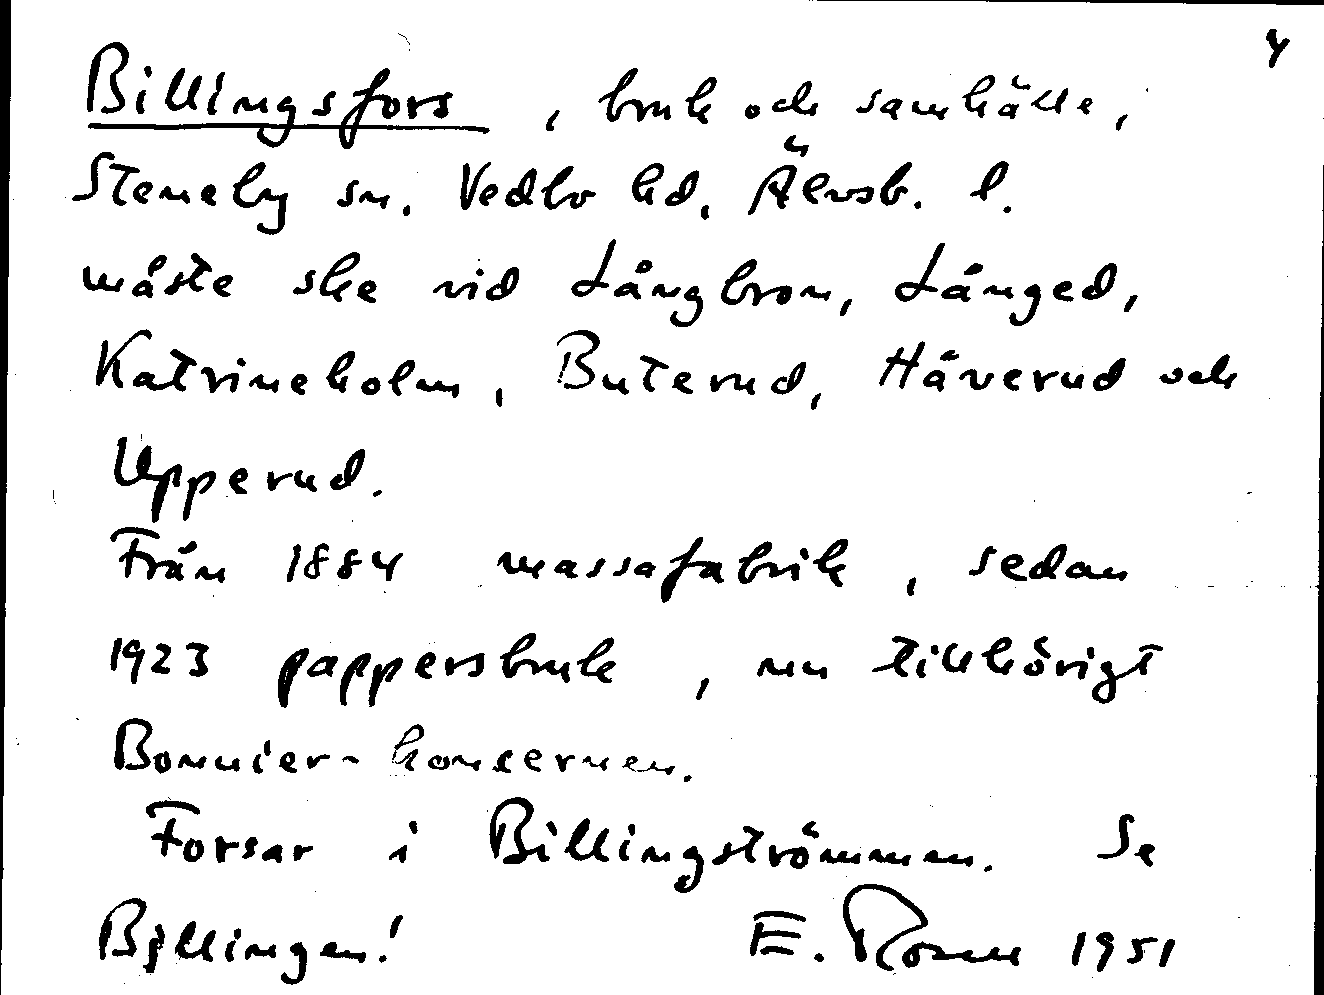 4
Billingsfors, bruk och samhälle,
Steneby sn. Vedbo hd. Älvsb. l.
måste ske vid Långbron, Långed,
Katrineholm, Buterud, Håverud och
Upperud.
Från 1884 massafabrik, sedan
1923 pappersbruk, nu tillhörigt
Bonnier-koncernen.
Forsar i Billingströmmen. Se
Billingen! E. Rosell 1951